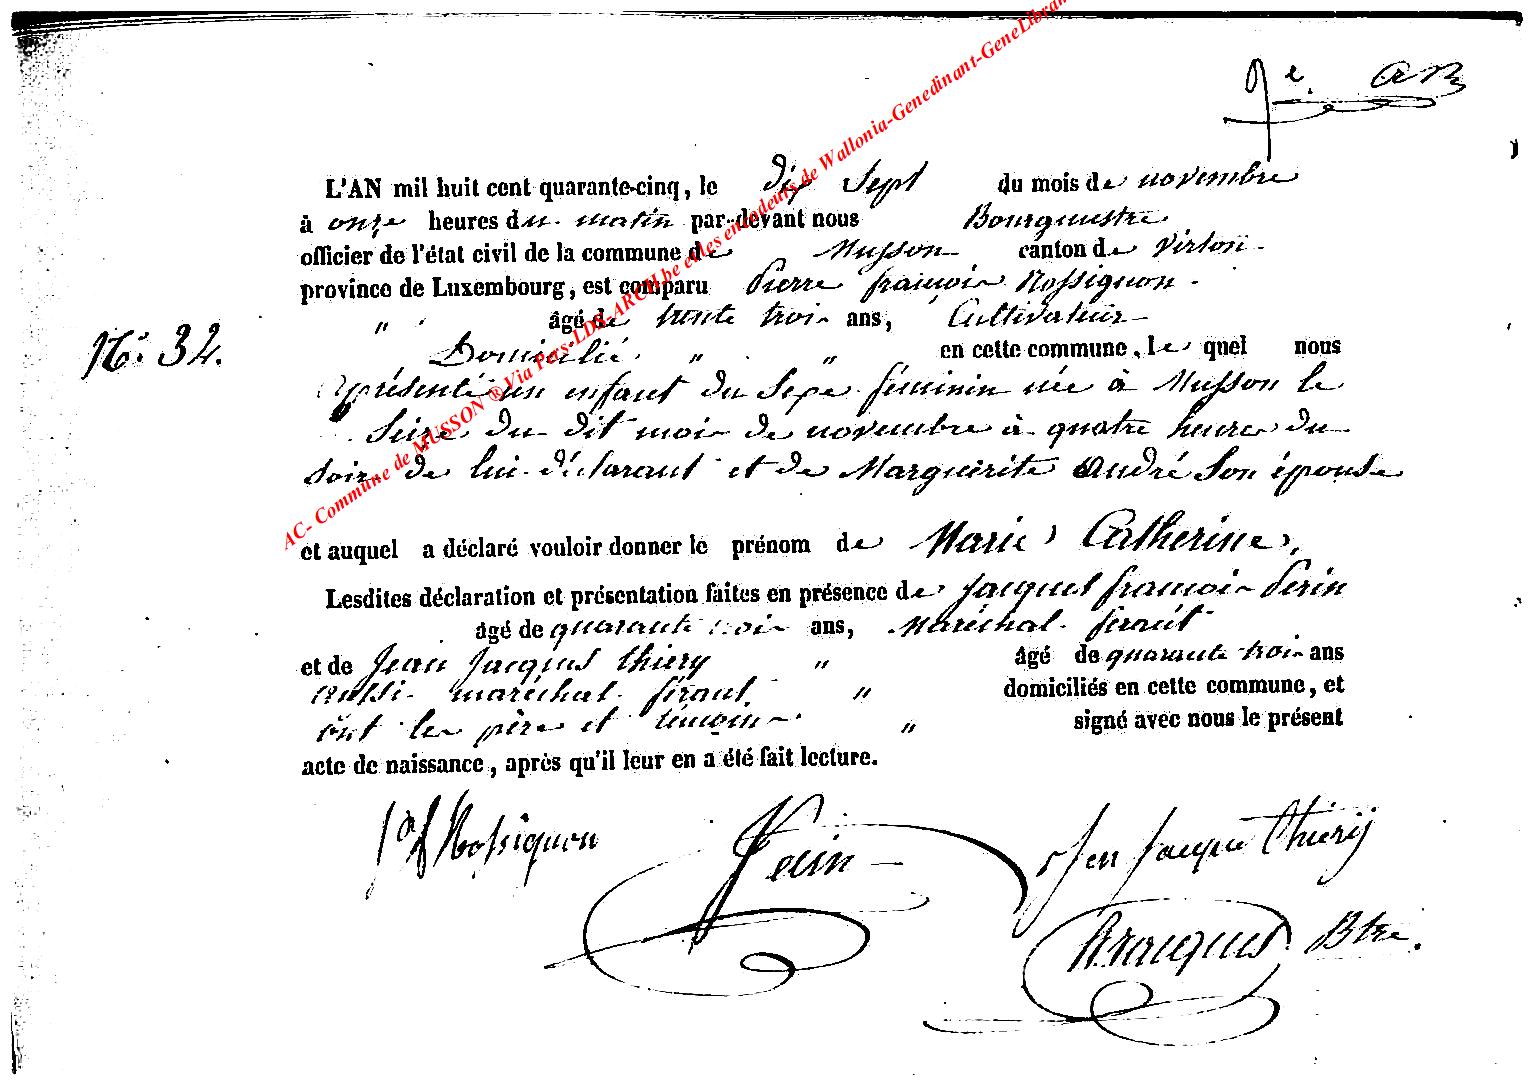 9e.
L'AN mil huit cent quarante-cinq, le dix sept du mois de novembre
à onze heures du matin par-devant nous Bourguestre
officier de l'état civil de la commune de Musson canton de Virton
province de Luxembourg, est comparu Pierre françois Rossignon
" âgé de trente trois ans, Cultivateur
N.° 32. Domicilié " " en cette commune, lequel nous
a présenté un enfant du Sexe féminin née à Musson le
Seize du dit mois de novembre à quatre heures du
soir de lui déclarant et de Marguerite André Son épouse
et auquel a déclaré vouloir donner le prénom de Marie Catherine,
Lesdites déclaration et présentation faites en présence de Jacques françois Perin
âgé de quarante trois ans, Maréchal feraut
et de Jean Jacques thiery " âgé de quarante trois ans
aussi maréchal feraut " domiciliés en cette commune, et
ont les père et témoins " signé avec nous le présent
acte de naissance, après qu'il leur en a été fait lecture.
Rossignon Perin Jen Jacque thiery
Btre.
AC- Commune de MUSSON ® Via Pers-LDS-ARCH.be et les encodeurs de Wallonia-Genedinant-GeneLibran